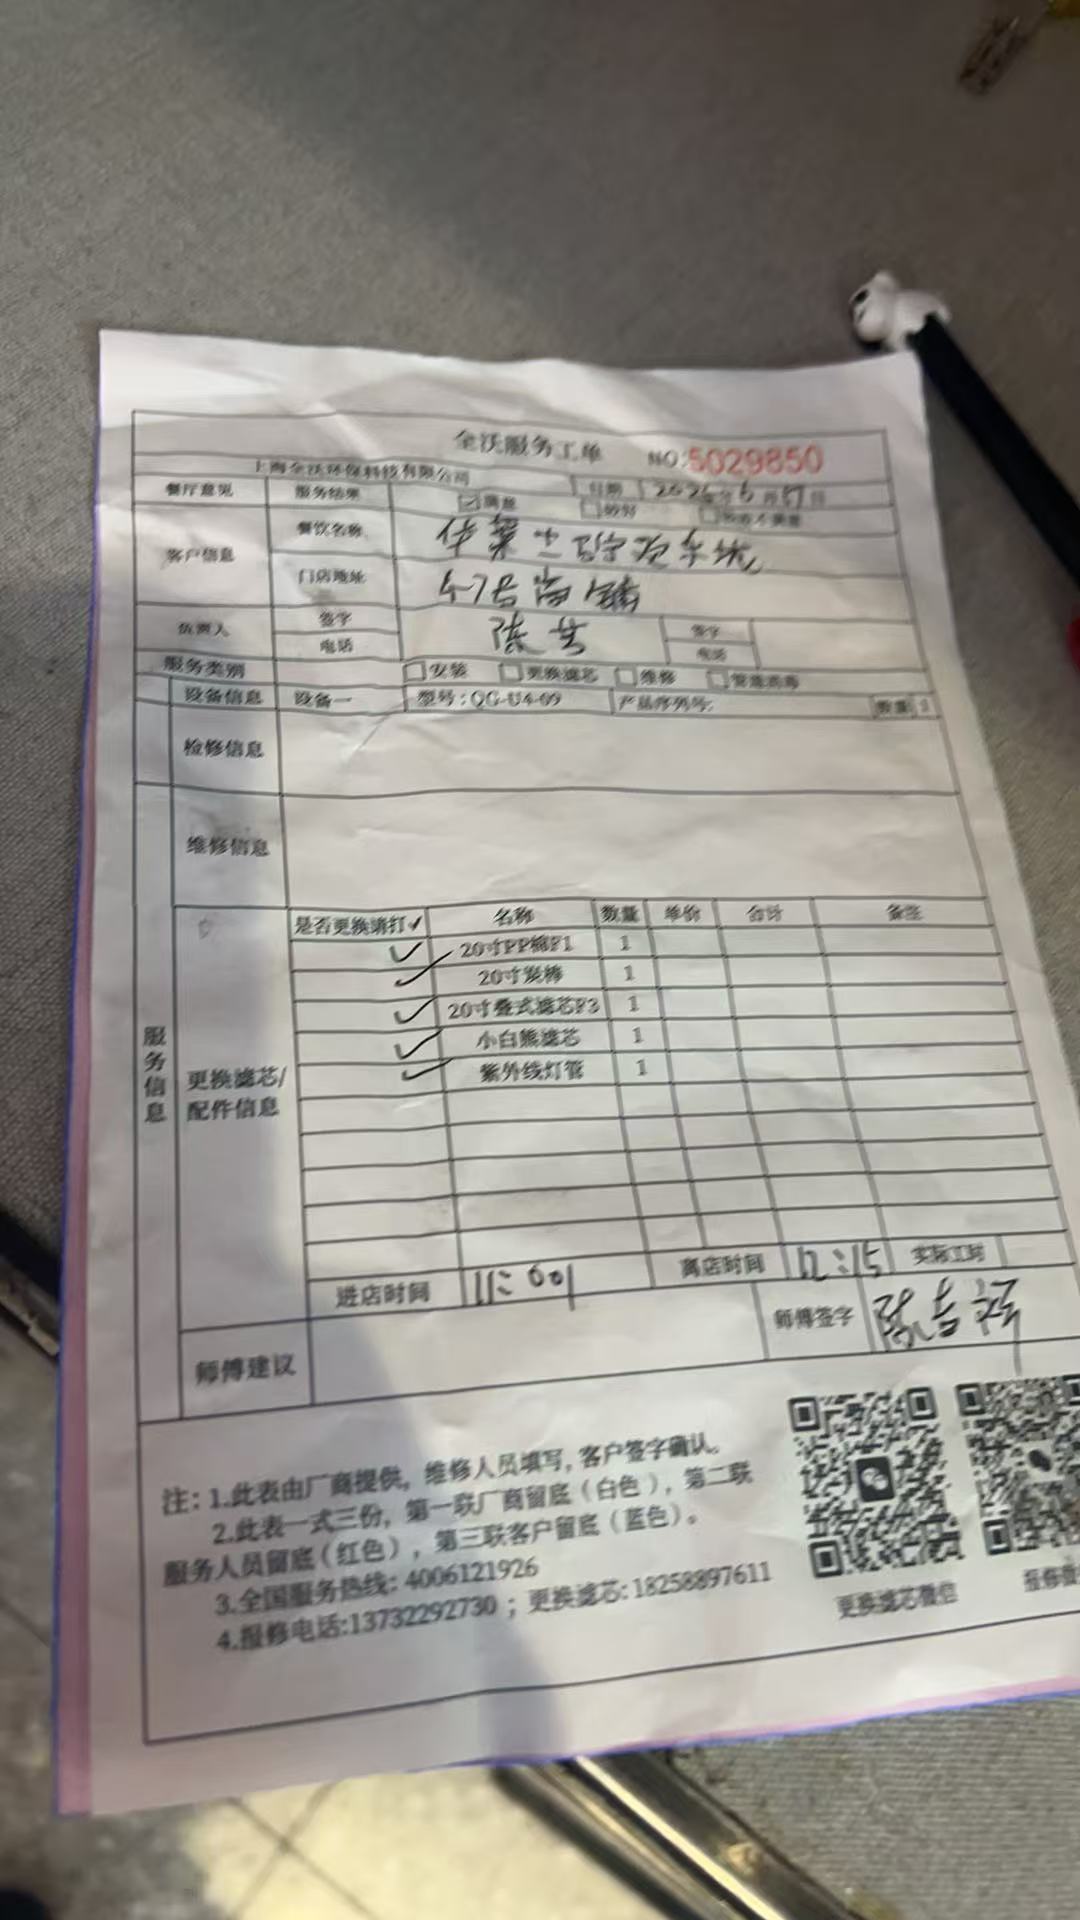 全沃服务工单 NO:5029850
上海全沃环保科技有限公司 日期 2026年6月17日
餐厅意见 服务结果 ☑满意 □较好 □
客户信息 餐饮名称
门店地址
负责人 签字 签字
电话 电话
服务类别 □安装 □更换滤芯 □维修 □管道消毒
设备信息 设备一 型号:QG-U4-09 产品序列号: 数量 1
检修信息
维修信息
服务信息
更换滤芯/配件信息
是否更换请打✓ 名称 数量 单价 合计 备注
✓ 20寸PP棉P1 1
✓ 20寸炭棒 1
✓ 20寸叠式滤芯P3 1
✓ 小白熊滤芯 1
✓ 紫外线灯管 1
进店时间 11:00 离店时间 12:15 实际工时
师傅建议 师傅签字
注:1.此表由厂商提供,维修人员填写,客户签字确认。
2.此表一式三份,第一联厂商留底(白色),第二联
服务人员留底(红色),第三联客户留底(蓝色)。
3.全国服务热线:4006121926
4.报修电话:13732292730;更换滤芯:18258897611
更换滤芯微信 报修微